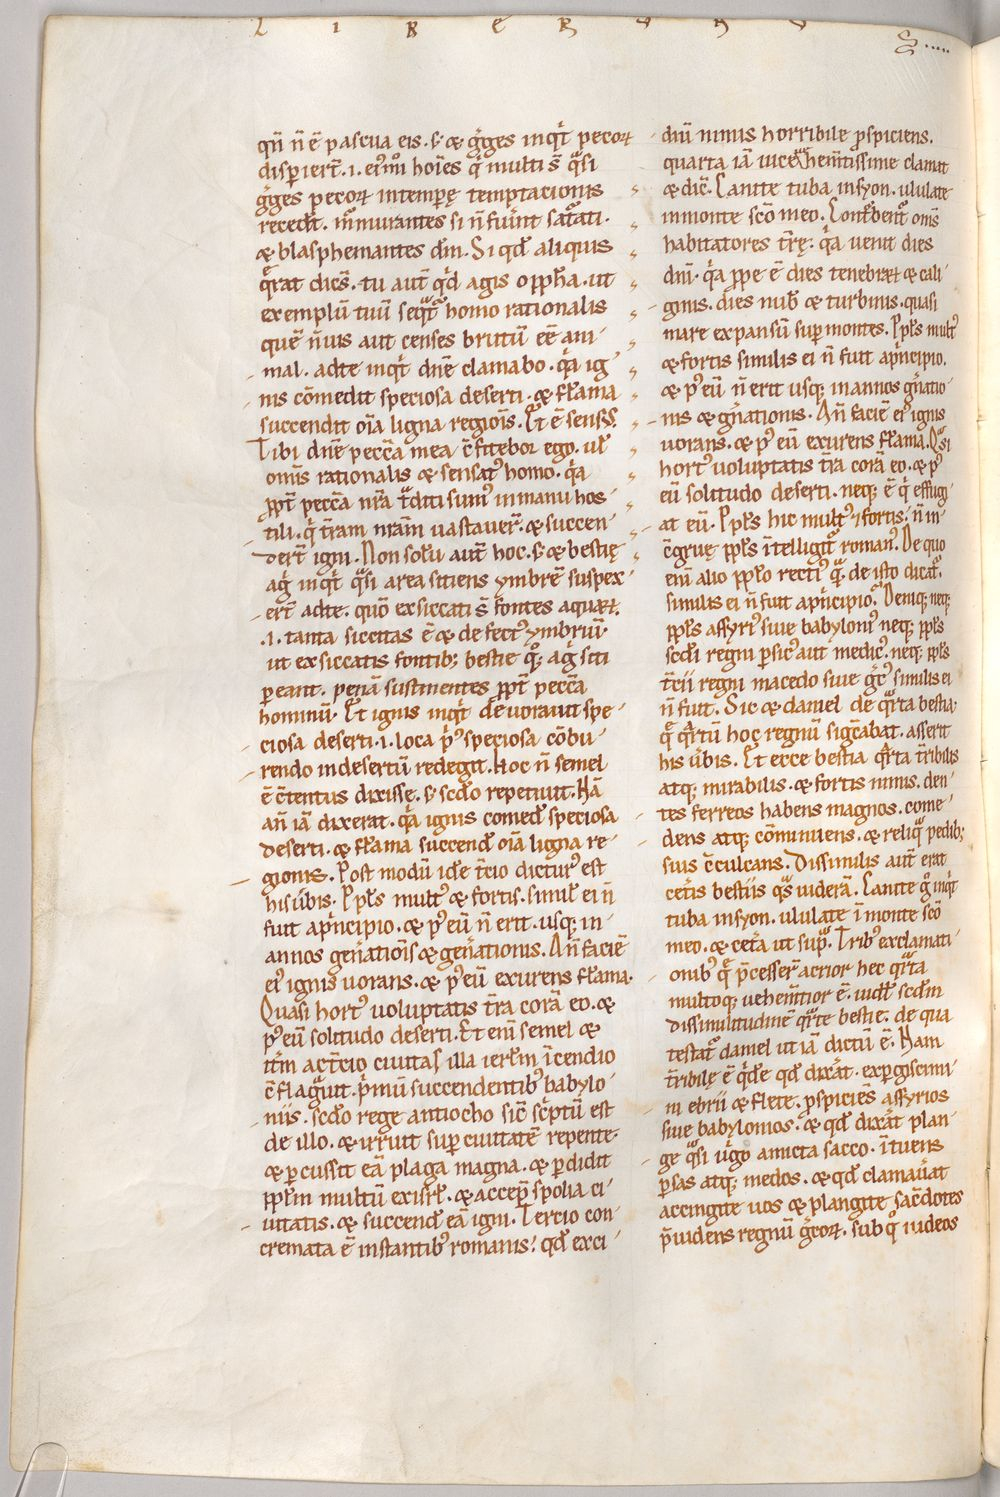 L I B E R
qn̄ n̄ ē pascua eis. s; & gͥges inqͥt pecoꝝ
disꝑiert̄. .i. eiꝰmōi hoīes qͥ multi s̄ qᵃsi
gͥges pecoꝝ intempę temptacionis
murmurantes si n̄ fuͥint satͣati.
& blasphemantes dm̄. Si qd̄ aliquis
qͣrat dicēs. tu aut̄ qͥd agis o ꝓph̄a. ut
exemplū tuū seqᵃt᷑ homo rationalis
quē n̄ uis aut censes brutū eē ani
mal. ad te inqͥt dn̄e clamabo. qͥa ig
nis cōmedit speciosa deserti. & flāma
succendit oīa ligna regiōis. Et ē sensꝰ.
Tibi dn̄e pecc̄a mea c̄fitebor ego. ul̓
omīs rationalis & sensatꝰ homo. qͥa
ꝓpt̄ pecc̄a nr̄a tᵃditi sumꝰ in manu hos
tili. qͥ t̄ram nr̄am uastauer̄. & succen
dert̄ igni. Non solū aut̄ hoc. s; & bestię
agͥ inqͥt qᵃsi area sitiens ymbrē suspex
ert̄ ad te. quō exsiccati s̄ fontes aquaꝝ.
.i. tanta siccitas ē & defectꝰ ymbriū.
ut exsiccatis fontib; bestie qͦ; agͥ siti
ꝑeant. penā sustinentes ꝓpt̄ pecc̄a
hominū. Et ignis inqͥt deuorauit spe
ciosa deserti. .i. loca pͥꝰ speciosa cōbu
rendo in desertū redegit. Hoc n̄ semel
ē c̄tentus dixisse. s; scd̄o repetiuit. Nā
an̄ iā dixerat. qͥa ignis comed̄ speciosa
deserti. & flāma succend̄ oīa ligna re
gionis. Post modū id̄e t̄cio dicturꝰ est
his ūbis. Ppl̄s multꝰ & fortis. simil̓ ei n̄
fuit apͥncipio. & pꝰ eū n̄ erit. usq; in
annos gen̄atiōis & gen̄ationis. An̄ faciē
eiꝰ ignis uorans. & pꝰ eū exurens flāma.
Quasi hortꝰ uoluptatis t̄ra corā eo. &
pꝰ eū solitudo deserti. Et enī semel &
itͥm ac t̄cio ciuitas illa ierl̄m īcendio
c̄flagᵃuit. pͥmū succendentibꝰ babylo
niis. scd̄o rege antiocho sic̄ sc̄ptū est
de illo. & irruit suꝑ ciuitatē repente.
& ꝑcussit eā plaga magna. & ꝑdidit
ppl̄m multū ex isrl̄. & accep̄ spolia ci
uitatis. & succend̄ eā igni. Tercio con
cremata ē instantibꝰ romanis! qd̄ exci
diū nimis horribile ꝓspiciens.
quarta iā uice uehem̄tissime clamat
& dic̄. Canite tuba in syon. ululate
in monte scō meo. Conturbent᷑ om̄s
habitatores t̄rę. qͥa uenit dies
dn̄i. qͥa ꝓpe ē dies tenebraꝝ & cali
ginis. dies nub̄ & turbinis. quasi
mare expansū suꝑ montes. Ppl̄s multꝰ
& fortis similis ei n̄ fuit apͥncipio.
& pꝰ eū n̄ erit usq; in annos gn̄atio
nis & gn̄ationis. An̄ faciē eiꝰ ignis
uorans. & pꝰ eū exurens flāma. Qᵃsi
hortꝰ uoluptatis t̄ra corā eo. & pꝰ
eū solitudo deserti. neq; ē qͥ effugi
at eū. Ppl̄s hic multꝰ & fortis. n̄ in
c̄gruę ppl̄s ītelligit᷑ romanꝰ. De quo
enī alio ppl̄o rectiꝰ qᵃ; de isto dicat᷑.
similis ei n̄ fuit apͥncipio. Deniq; neq;
ppl̄s assyriꝰ siue babyloniꝰ neq; ppl̄s
scd̄i regni ꝑsicꝰ aut medicꝰ. neq; ppl̄s
t̄cii regni macedo siue gͤcꝰ similis ei
n̄ fuit. Sic & daniel de qᵃrta bestia.
qͤ qᵃrtū hoc regnū sigc̄abat. asserit
his ūbis. Et ecce bestia qᵃrta t̄ribilis
atq; mirabilis. & fortis nimis. den
tes ferreos habens magnos. come
dens atq; cōminuens. & reliqᵃ pedib;
suis c̄culcans. Dissimilis aut̄ erat
cet̄is bestiis qᵃs uiderā. Canite gͦ inqͥt
tuba in syon. ululate ī monte scō
meo. & cet̄a ut supᵃ. Tribꝰ exclamati
onibꝰ qͤ p̄cesser̄ acrior hec qᵃrta
multoq; uehem̄tior ē. iuxta scd̄m
dissimilitudinē qᵃrte bestie. de qua
testat᷑ daniel ut iā dictū ē. Nam
t̄ribilę ē qͥd̄e qd̄ dixͣat. exꝑgiscimi
ni ebrii & flete. ꝓspiciēs assyrios
siue babylonios. & qd̄ dixͣat plan
ge qᵃsi uͥgo amicta sacco. ītuens
ꝑsas atq; medos. & qd̄ clamauͣat
accingite uos & plangite sac̄dotes
p̄uidens regnū gͤcoꝝ. sub qͦ iudeos